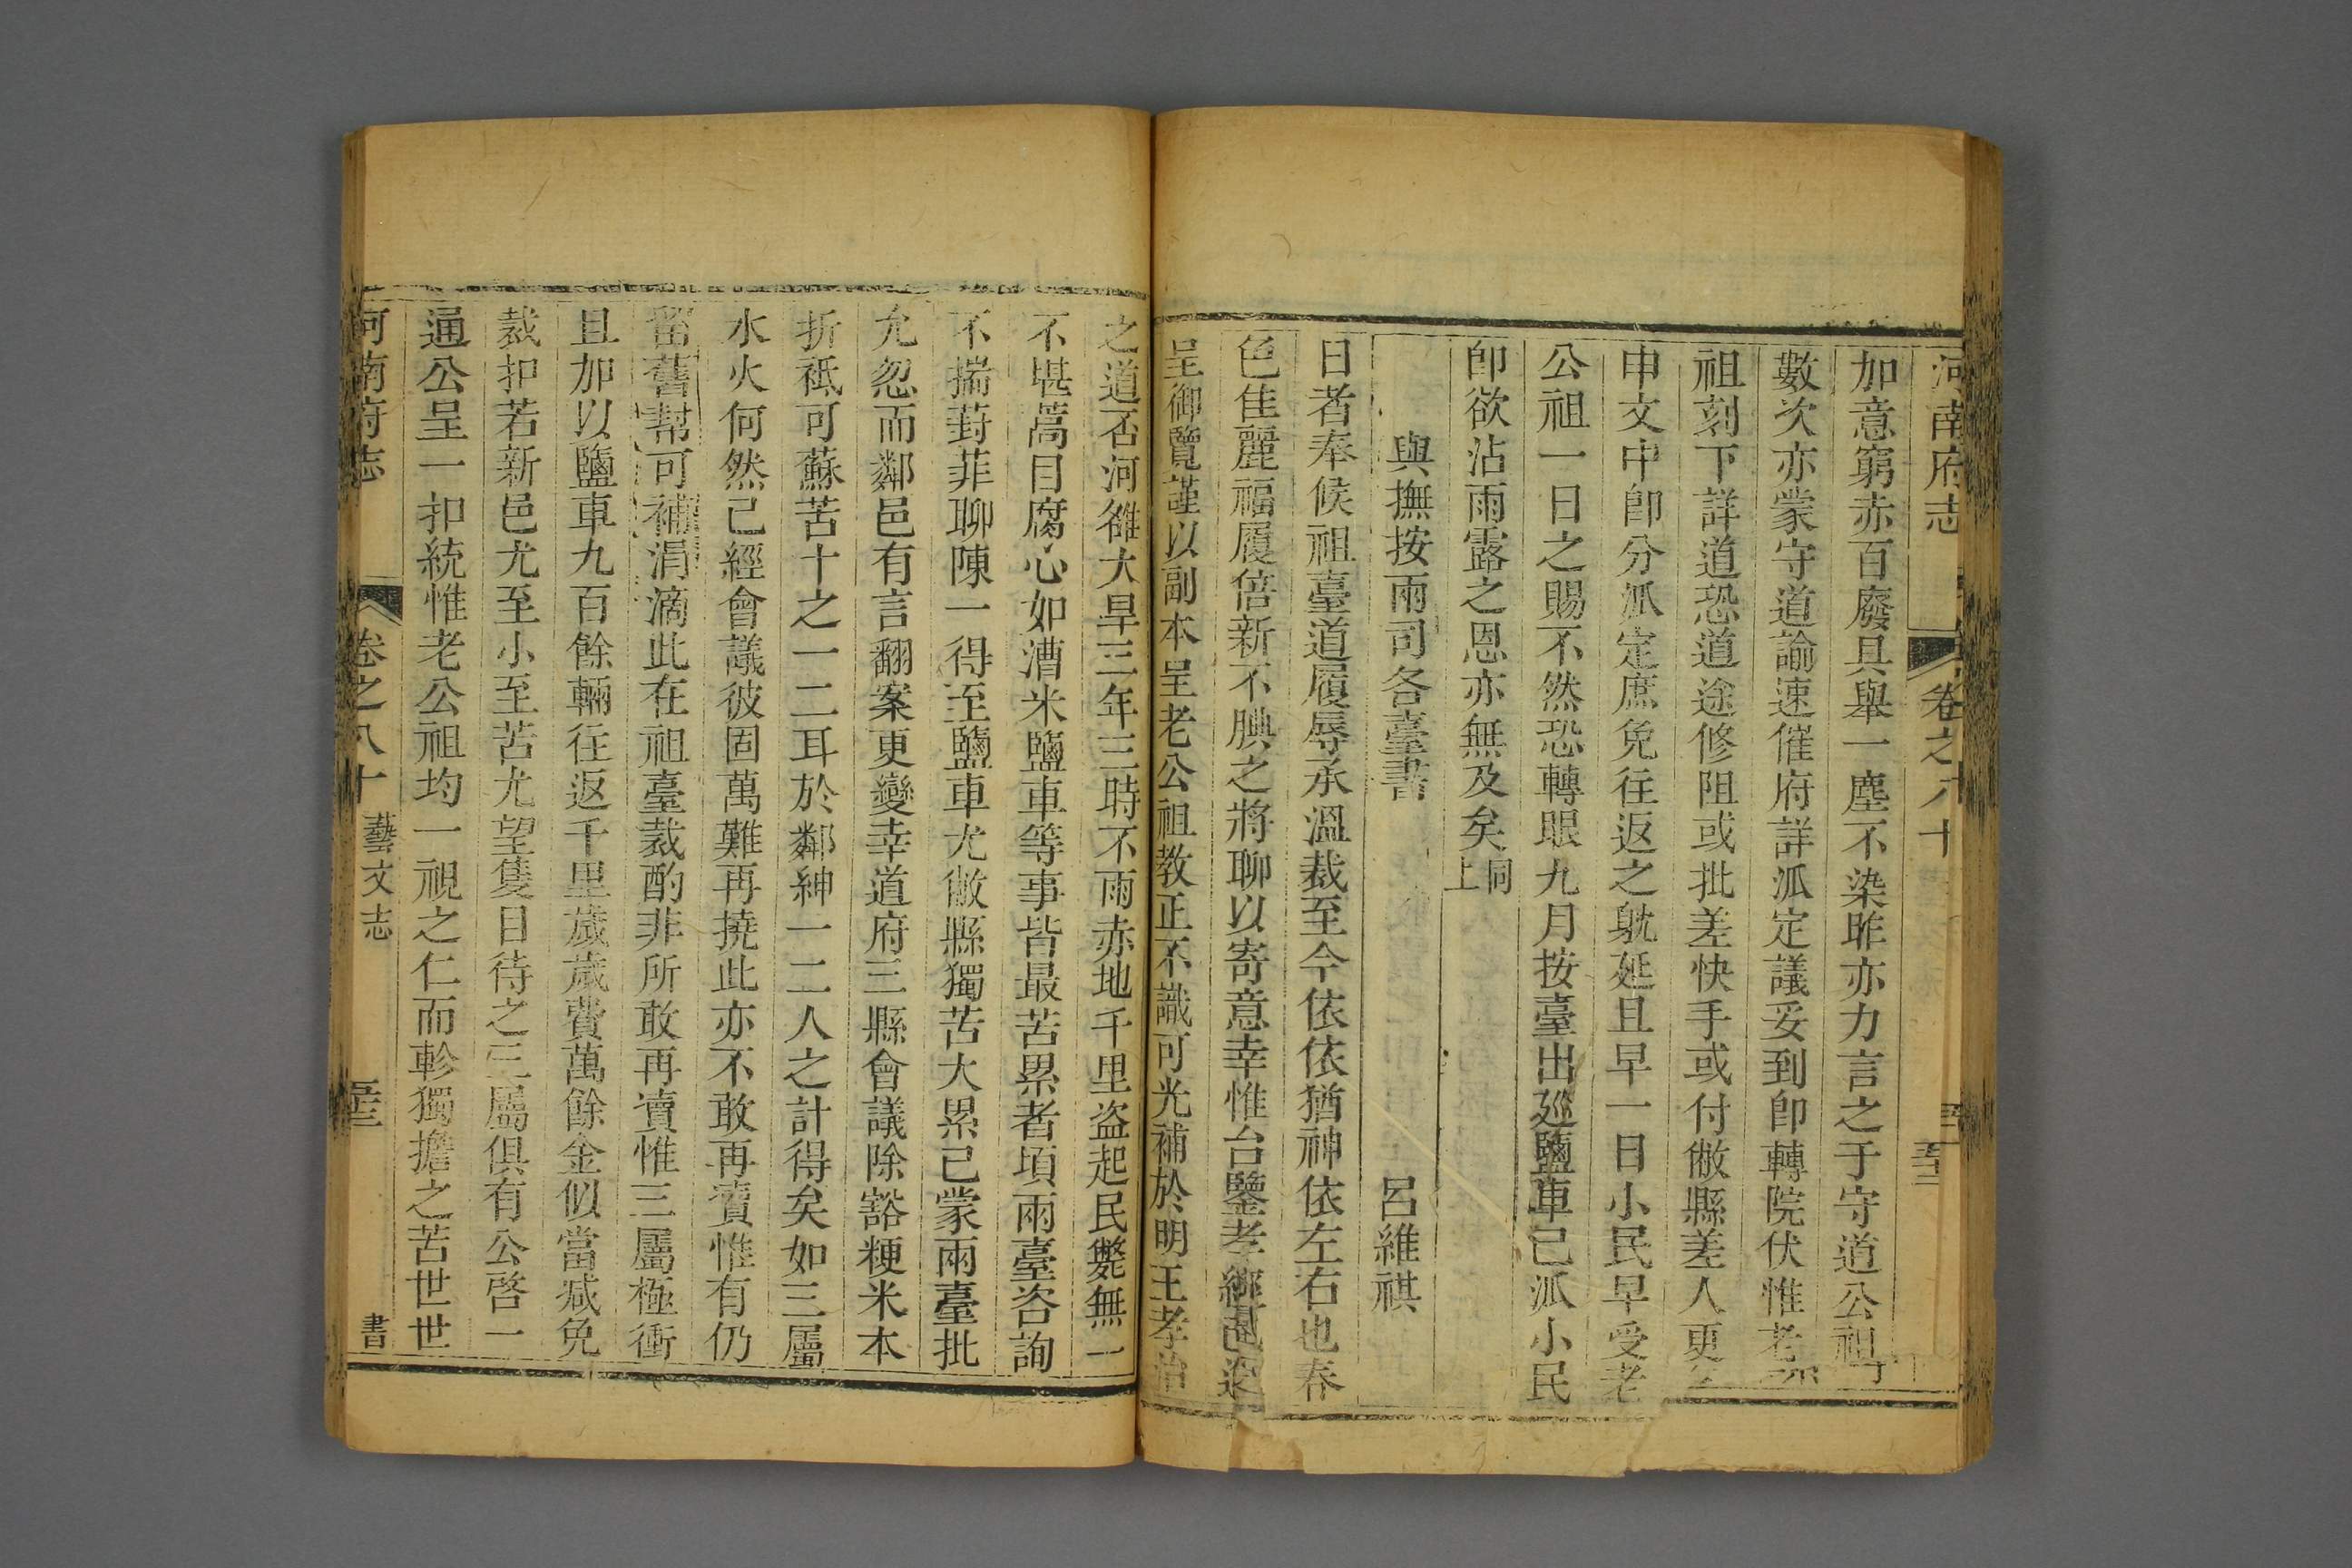 河南府志 卷之八十
加意窮赤百廢具舉一塵不染昨亦力言之于守道公祖
數次亦蒙守道諭速催府詳派定議妥到卽轉院伏惟老
祖刻下詳道恐道途修阻或批差快手或付敝縣差人更
申文中卽分派定庶免往返之躭延且早一日小民早受老
公祖一日之賜不然恐轉眼九月按臺出廵鹽車已派小民
卽欲沾雨露之恩亦無及矣同上
與撫按兩司各臺書 呂維祺
日者奉候祖臺道履辱承溫裁至今依依猶神依左右也春
色佳麗福履倍新不腆之將聊以寄意幸惟台鑒孝經
呈御覽謹以副本呈老公祖教正不識可光補於明王孝治
之道否河雒大旱三年三時不雨赤地千里盗起民斃無一
不堪蒿目腐心如漕米鹽車等事皆最苦累者頃兩臺咨詢
不揣葑菲聊陳一得至鹽車尤敝縣獨苦大累已蒙兩臺批
允忽而鄰邑有言翻案更變幸道府三縣會議除豁粳米本
折祗可蘇苦十之一二耳於鄰紳一二人之計得矣如三屬
水火何然已經會議彼固萬難再撓此亦不敢再瀆惟有仍
留舊幇可補涓滴此在祖臺裁酌非所敢再瀆惟三屬極衝
且加以鹽車九百餘輛往返千里歲歲費萬餘金似當减免
裁扣若新邑尤至小至苦尤望隻目待之三屬俱有公啓一
通公呈一扣統惟老公祖均一視之仁而軫獨擔之苦世世
河南府志 卷之八十 藝文志 書